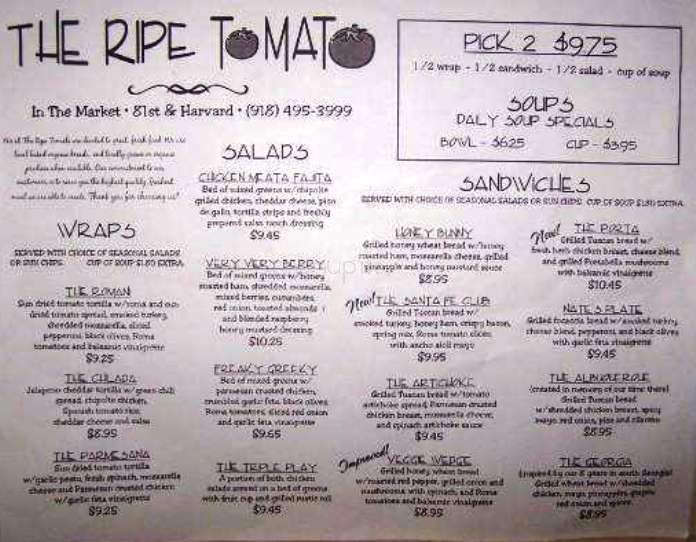 THE RIPE TOMATO
In The Market • 81st & Harvard • (918) 495-3999
PICK 2 $9.75
1/2 wrap - 1/2 sandwich - 1/2 salad - cup of soup
SOUPS
DAILY SOUP SPECIALS
BOWL - $6.25 CUP - $3.95
WRAPS
SERVED WITH CHOICE OF SEASONAL SALADS
OR SUN CHIPS. CUP OF SOUP $1.50 EXTRA
THE ROMAN
Sun dried tomato tortilla w/roma and sun
dried tomato spread, smoked turkey,
shredded mozzarella, sliced
pepperoni, black olives, Roma
tomatoes and balsamic vinaigrette
$9.25
THE CHLADA
Jalapeno cheddar tortilla w/green chili
spread, chipotle chicken,
Spanish tomato rice,
cheddar cheese and salsa
$8.95
THE PARMESANA
Sun dried tomato tortilla
w/garlic pesto, fresh spinach, mozzarella
cheese and Parmesan crusted chicken
w/garlic feta vinaigrette
$9.25
SALADS
CHICKEN MEATA FAJITA
Bed of mixed greens w/chipotle
grilled chicken, cheddar cheese, pico
de gallo, tortilla strips and freshly
prepared salsa ranch dressing
$9.45
VERY VERY BERRY
Bed of mixed greens w/honey
roasted ham, shredded mozzarella,
mixed berries, cucumbers,
red onion, toasted almonds
and blended raspberry
honey mustard dressing
$10.25
FREAKY GREEKY
Bed of mixed greens w/
parmesan crusted chicken,
crumbled garlic feta, black olives,
Roma tomatoes, sliced red onion
and garlic feta vinaigrette
$9.65
THE TRIPLE PLAY
A portion of both chicken
salads served on a bed of greens
with fruit cup and grilled rustic roll
$9.45
SANDWICHES
SERVED WITH CHOICE OF SEASONAL SALADS OR SUN CHIPS. CUP OF SOUP $1.50 EXTRA
HONEY BUNNY
Grilled honey wheat bread w/honey
roasted ham, mozzarella cheese, grilled
pineapple and honey mustard sauce
$8.95
New! THE SANTA FE CLUB
Grilled Tuscan bread w/
smoked turkey, honey ham, crispy bacon,
spring mix, Roma tomato slices
with ancho aioli mayo
$9.95
THE ARTICHOKE
Grilled Tuscan bread w/tomato
artichoke spread, Parmesan crusted
chicken breast, mozzarella cheese,
and spinach artichoke sauce
$9.45
Improved! VEGGE WEDGE
Grilled honey wheat bread
w/roasted red pepper, grilled onion and
mushrooms, with spinach, and Roma
tomatoes and balsamic vinaigrette
$8.95
New! THE PORTA
Grilled Tuscan bread w/
fresh herb chicken breast, cheese blend,
and grilled Portabella mushrooms
with balsamic vinaigrette
$10.45
NATE'S PLATE
Grilled focaccia bread w/smoked turkey,
cheese blend, pepperoni, and black olives
with garlic feta vinaigrette
$9.45
THE ALBUQUERQUE
(created in memory of our time there)
Grilled Tuscan bread
w/shredded chicken breast, spicy
mayo, red onion, pico and cilantro
$8.95
THE GEORGIA
(inspired by our 8 years in south Georgia)
Grilled wheat bread w/shredded
chicken, mayo, pineapple, grapes,
red onion and spices
$8.95